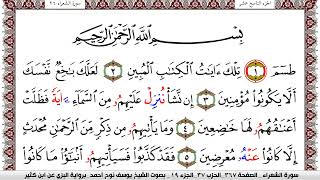 الجزء التاسع عشر
سورة الشعراء ٢٦
بِسْمِ اللَّهِ الرَّحْمَٰنِ الرَّحِيمِ
طسٓمٓ ١ تِلْكَ ءَايَٰتُ الْكِتَٰبِ الْمُبِينِ ٢ لَعَلَّكَ بَٰخِعٌ نَّفْسَكَ
أَلَّا يَكُونُوا۟ مُؤْمِنِينَ ٣ إِن نَّشَأْ نُنزِلْ عَلَيْهِمُۥ مِنَ السَّمَآءِ ءَايَةً فَظَلَّتْ
أَعْنَٰقُهُمُۥ لَهَا خَٰضِعِينَ ٤ وَمَا يَأْتِيهِمُۥ مِن ذِكْرٍ مِّنَ الرَّحْمَٰنِ مُحْدَثٍ
إِلَّا كَانُوا۟ عَنْهُۥ مُعْرِضِينَ ٥ فَقَدْ كَذَّبُوا۟ فَسَيَأْتِيهِمُۥ أَنۢبَٰٓؤُا۟ مَا كَانُوا۟
سورة الشعراء . الصفحة ٣٦٧ . الحزب ٣٧ . الجزء ١٩ . بصوت الشيخ يوسف نوح احمد . برواية البزي عن ابن كثير